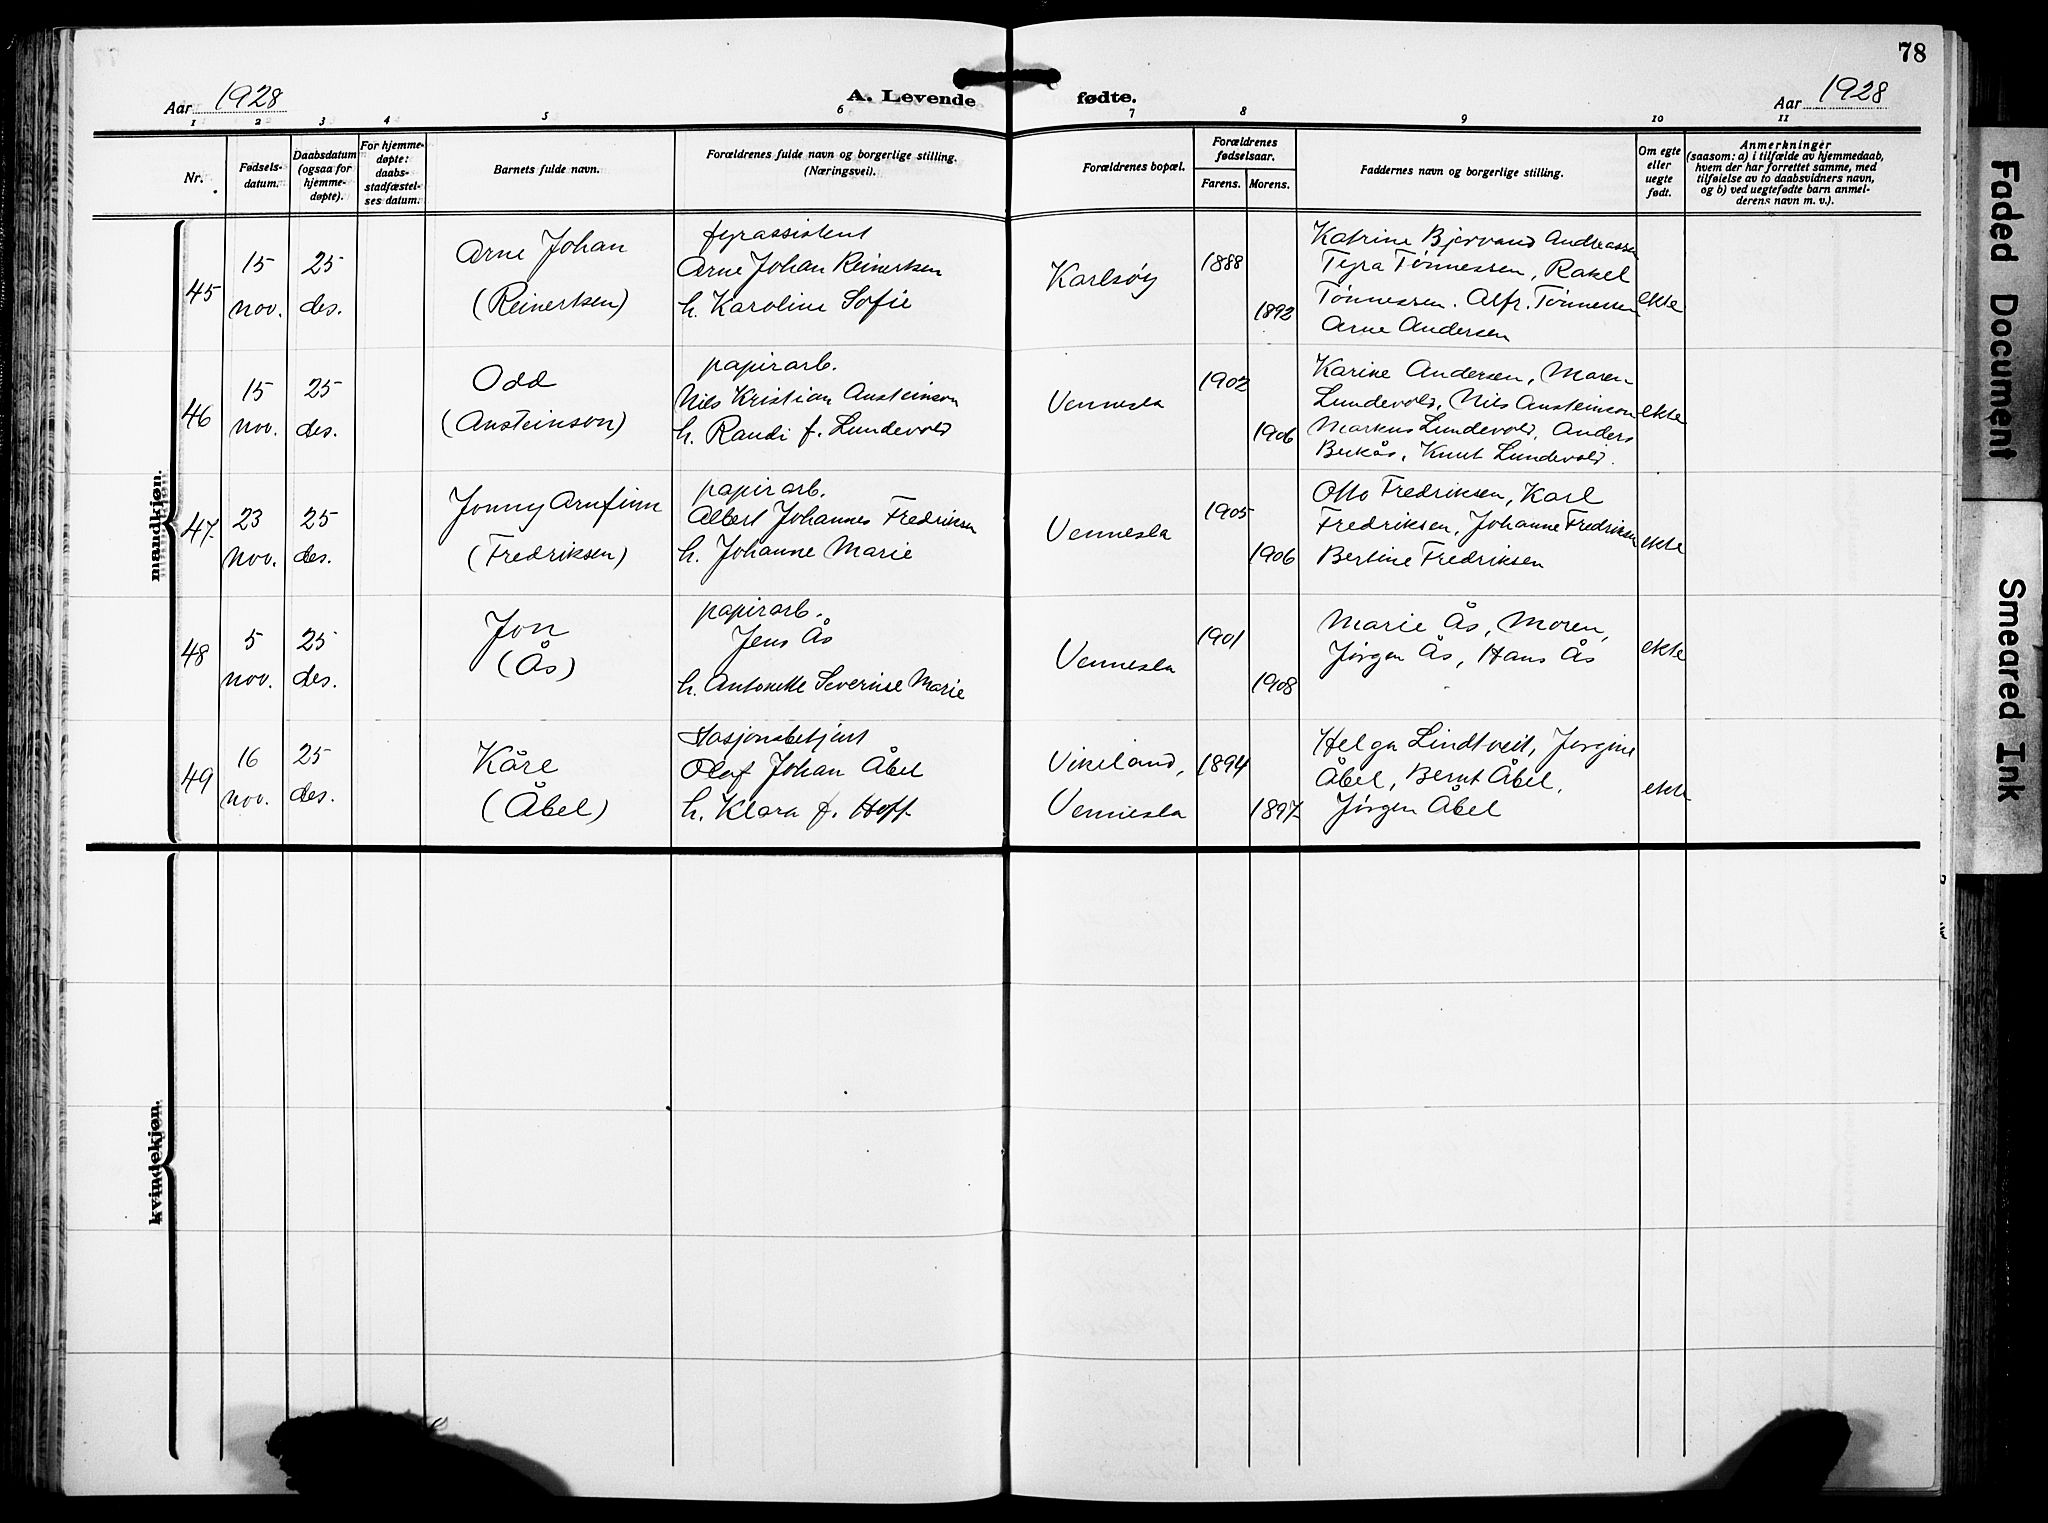 78
Aar 1928
A. Levende fødte.
Aar 1928
1 2 3 4 5 6 7 8 9 10 11
Nr.
Fødsels-
datum.
Daabsdatum
(ogsaa for
hjemme-
døpte).
For hjemme-
døpte:
daabs-
stadfæstel-
ses datum.
Barnets fulde navn.
Forældrenes fulde navn og borgerlige stilling.
(Næringsvei).
Forældrenes bopæl.
Forældrenes
fødselsaar.
Farens. Morens.
Faddernes navn og borgerlige stilling.
Om egte
eller
uegte
født.
Anmerkninger
(saasom: a) i tilfælde av hjemmedaab,
hvem der har forrettet samme, med
tilføielse av to daabsvidners navn,
og b) ved uegtefødte barn anmel-
derens navn m. v.).
mandkjøn.
45
15
nov.
25
des.
Arne Johan
(Reinertsen)
fyrassistent
Arne Johan Reinertsen
h. Karoline Sofie
Karlsøy
1888
1892
Katrine Bjorvand Andreassen
Tyra Tønnessen, Rakel
Tønnessen. Alfr. Tønnessen
Arne Andersen
ekte
46
15
nov.
25
des.
Odd
(Austeinson)
papirarb.
Nils Kristian Austeinson
h. Randi f. Lundevold
Vennesla
1902
1906
Karine Andersen, Maren
Lundevold, Nils Austeinson
Markus Lundevold, Anders
Knut Lundevold.
ekte
47
23
nov.
25
des.
Jonny Arnfinn
(Fredriksen)
papirarb.
Albert Johannes Fredriksen
h. Johanne Marie
Vennesla
1905
1906
Otto Fredriksen, Karl
Fredriksen, Johanne Fredriksen
Bertine Fredriksen
ekte
48
5
nov.
25
des.
Jon
(Ås)
papirarb.
Jens Ås
h. Antonette Severine Marie
Vennesla
1901
1908
Marie Ås, Moren,
Jørgen Ås, Hans Ås
ekte
49
16
nov.
25
des.
Kåre
(Åbel)
stasjonsbetjent
Olaf Johan Åbel
h. Klara f. Hoff
Vikeland,
Vennesla
1894
1897
Helga Lindtveit, Jørgine
Åbel, Bernt Åbel,
Jørgen Åbel
ekte
kvindekjøn.
Faded Document
Smeared Ink